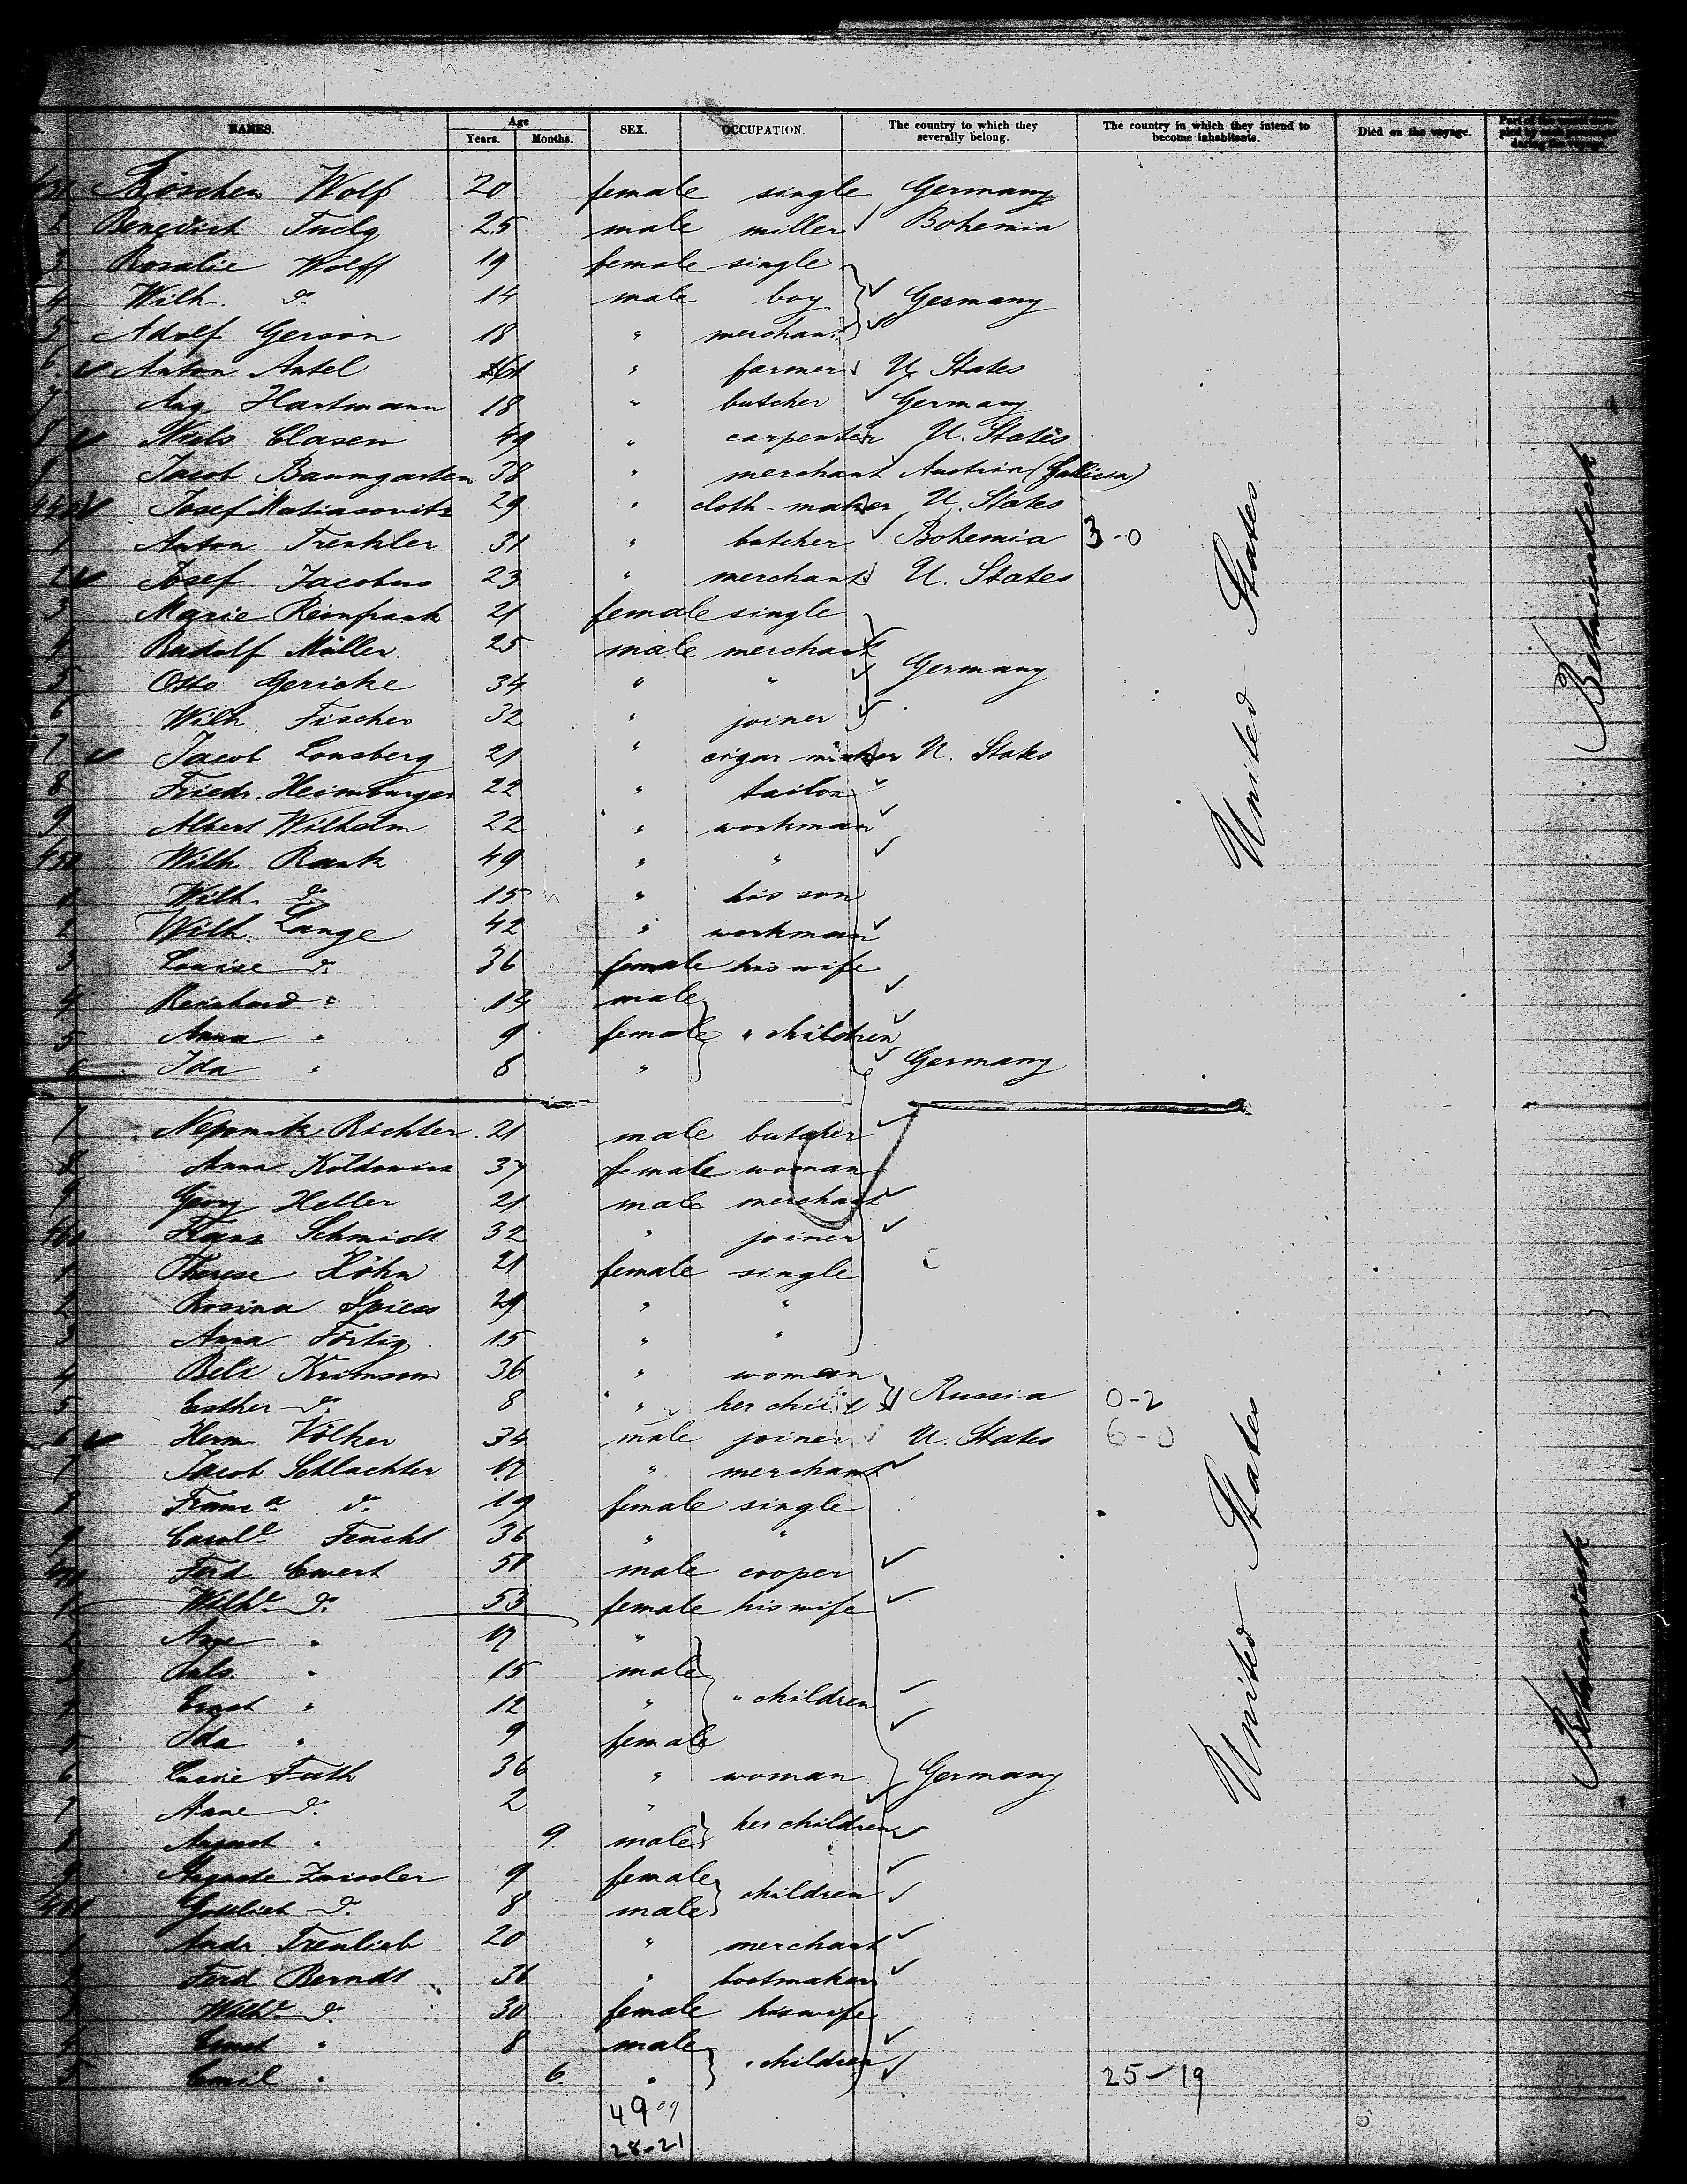 NAMES. Age SEX. OCCUPATION. The country to which they severally belong. The country in which they intend to become inhabitants. Died on the voyage. Part of the vessel occupied by each passenger during the voyage.
Years. Months.
Wolf 20 female single Germany
2 Benedict 25 male miller Bohemia
3 Rosalie Wolff 19 female single
4 Wilh. do 14 male boy Germany
5 Adolf Gerson 18 " merchant
6 Anton Antel " farmer U. States
7 Aug. Hartmann 18 " butcher Germany
8 Niels Clasen 49 " carpenter U. States
9 Jacob Baumgarten 38 " merchant Austria (Gallicia)
440 Josef Matiasovitz 29 " cloth-maker U. States
1 Anton Trenkler 31 " butcher Bohemia 3-0
2 Josef Jacobus 23 " merchant U. States
3 Marie Reinfrank 21 female single
4 Rudolf Müller 25 male merchant
5 Otto Gericke 34 " " Germany
6 Wilh. Fischer 32 " joiner
7 Jacob Lonsberg 21 " cigar-maker U. States
8 Friedr. Heimburger 22 " tailor
9 Albert Wilhelm 22 " workman
450 Wilh. Rank 49 " "
1 Wilh. do 15 " his son
2 Wilh. Lange 42 " workman
3 Louise do 36 female his wife
4 Reinhard " 14 male
5 Anna " 9 female " children
6 Ida " 8 " Germany
United States
7 Richter 21 male butcher
8 Anna 37 female woman
9 Georg Heller 21 male merchant
460 Franz Schmidt 32 " joiner
1 Therese Höhn 21 female single
2 Rosina Spiess 29 " "
3 Anna Förtig 15 " "
4 36 " woman
5 Esther do 8 " her child Russia 0-2
6 Herm. Völker 34 male joiner U. States 6-0
7 Jacob Schlachter 17 " merchant
8 do 19 female single
9 Feucht 36 " "
470 Ferd. Ewert 50 male cooper
1 Wilhe do 53 female his wife
2 " 17 "
3 " 15 male
4 Ernst " 12 " " children
5 Ida " 9 female
6 Fath 36 " woman Germany
7 Anne do 2 "
8 August " 9. male her children
9 Auguste 9 female
480 Gottlieb do 8 male children
1 Andr. Treulieb 20 " merchant
2 Ferd. Berndt 36 " bootmaker
3 Wilhe do 30 female his wife
4 Ernst " 8 male
5 Emil " 6. " " children 25-19
United States
49
28-21